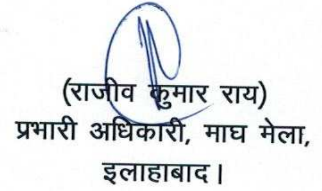 (राजीव कुमार राय)
प्रभारी अधिकारी, माघ मेला,
इलाहाबाद।